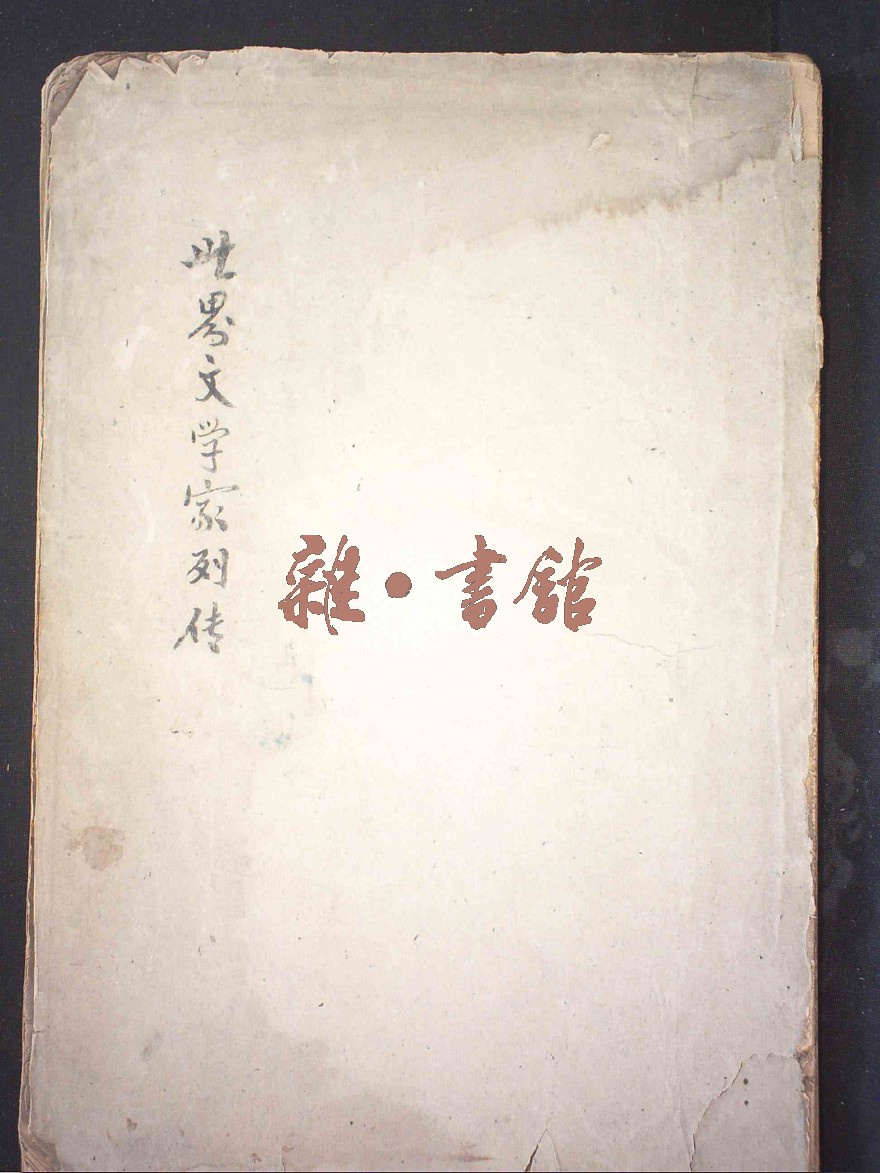 世界文学家列传
雜·書館